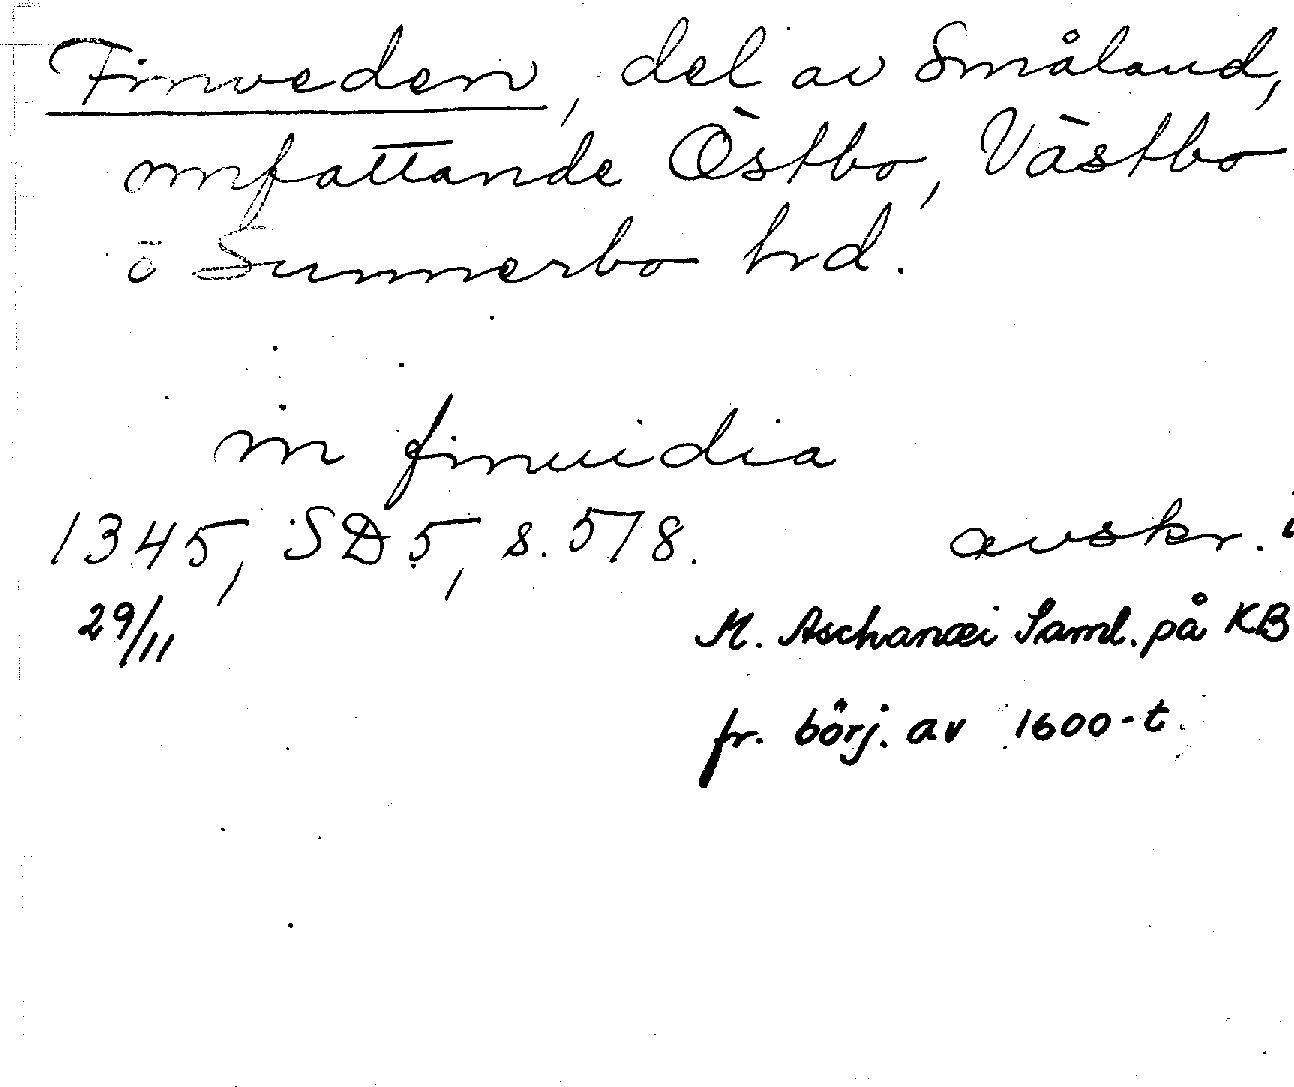 Finveden, del av Småland,
omfattande Östbo, Västbo
o Sunnerbo hrd.
in finuidia
1345, SD 5, s. 578. avskr. i
29/11 M. Aschanæi Saml. på KB
fr. börj. av 1600-t.